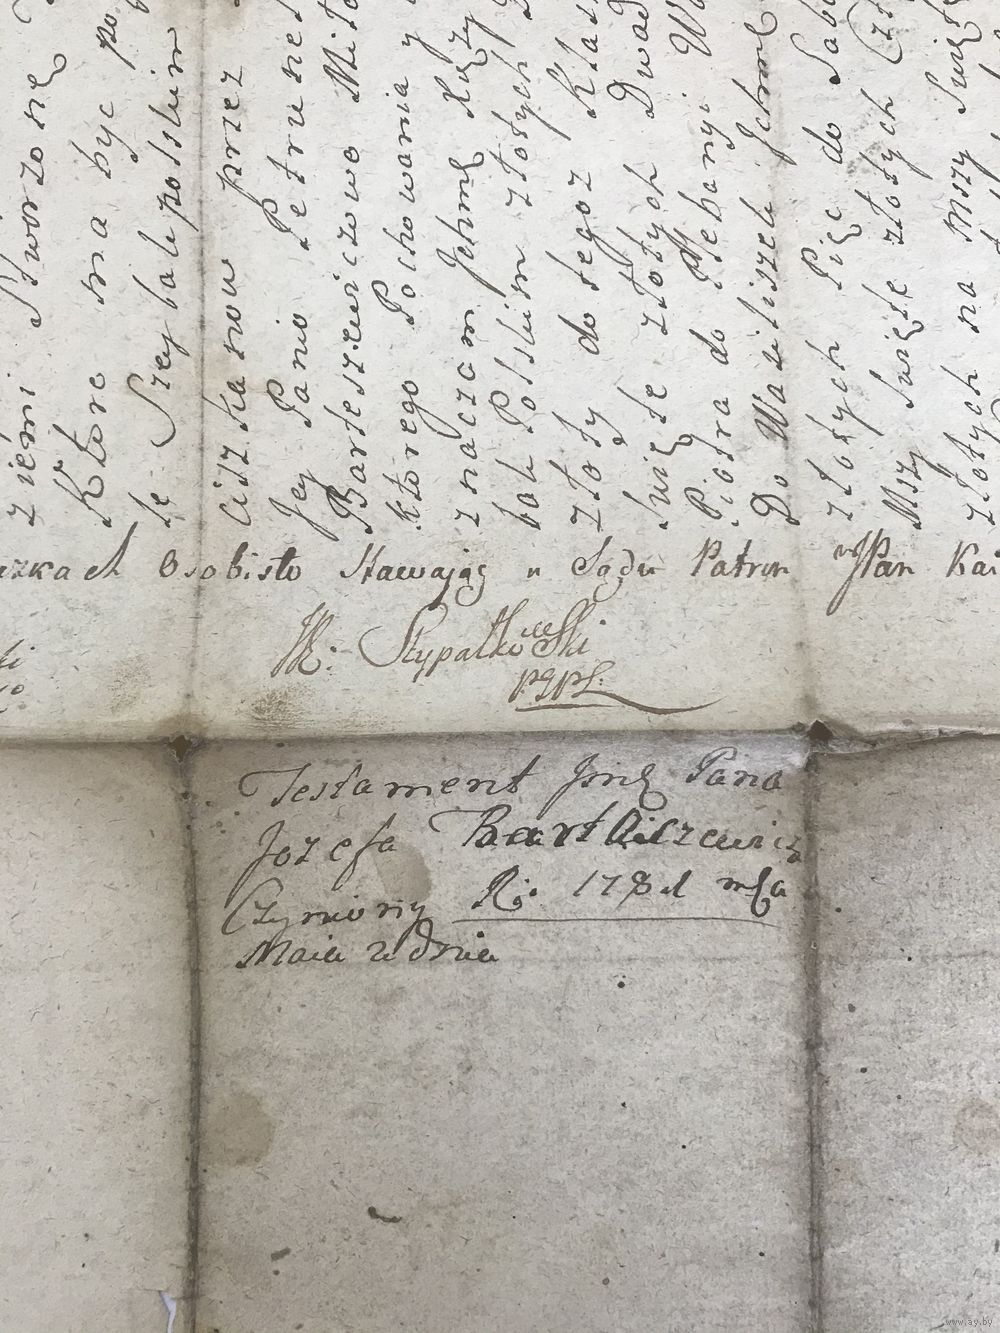 ziemi Stworzone
Które ma byc po
le Szczybalu polskim
Ciszkanow przez
Jey Panio Petrunel
Bartoszewiczowe Miło
którego Pochowania y
znaczam Jchmć Xięży
bali Polskim złotych
złoty do tegoż Klas
Święte złotych Dwad
Piotra do Plebanyi Wa
Do Wasiliszek Jchmć
złotych Pięć do Sabo
Mszy Święte złotych Czt
złotych na Mszy Święt
azkach Osobisto Stawając u Sądu Patron JPan Kai
Stypałkowski
PGPL.
Testament Jmć Pana
Jozefa Bartkiszewicz
Czyniony R. 178 mca
Maia dnia
www.ay.by